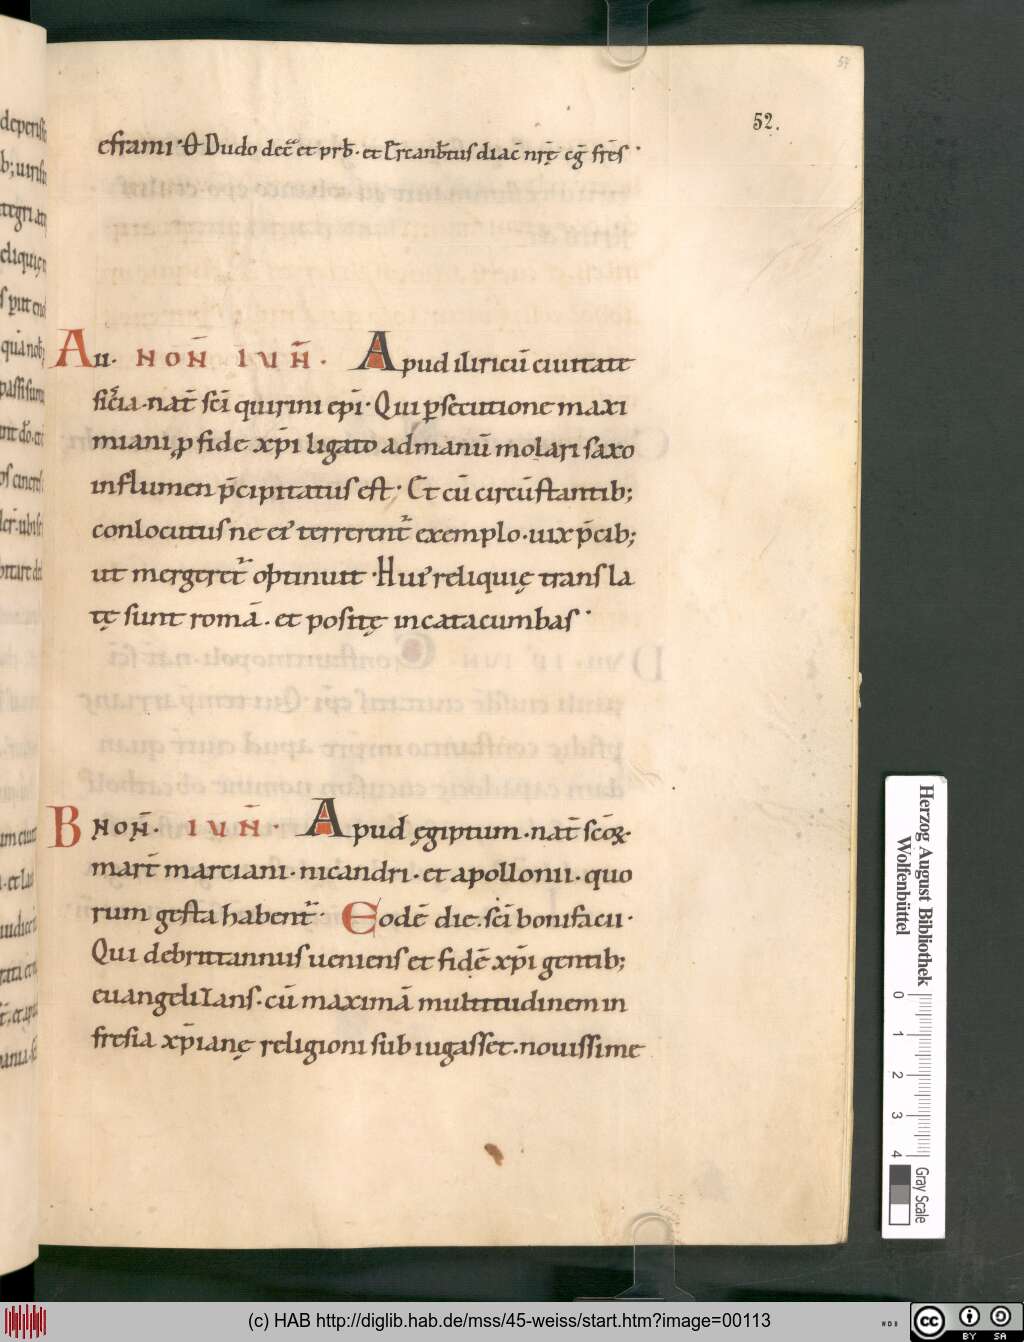 57
52.
eframi · Θ Dudo dec̄ et prb̄ · et Ercanb̄tus diac̄ nr̄ę cḡ fr̄es ·
A II · NON̄ IVN̄ · Apud iliricū ciuitate
sicia · nat̄ sc̄i quirini ep̄i · Qui p̱secutione maxi
miani ꝓ fide xp̄i ligato ad manū molari saxo
in flumen p̄cipitatus est · Et cū circūstantib;
conlocutus ne ei᾽ terrerent᷑ exemplo · uix p̄cib;
ut mergeret᷑ optinuit · Hui᾽ reliquię transla
tę sunt romā · et positę in catacumbas ·
B NON̄ · IVN̄ · Apud ęgiptum · nat̄ sc̄oꝝ ·
mart̄ marciani · nicandri · et apollonii · quo
rum gesta habent᷑ · Eodē die · sc̄i bonifacii ·
Qui de brittannus ueniens et fidē xp̄i gentib;
euangelizans · cū maximā multitudinem in
fresia xp̄ianę religioni subiugasset · nouissime
Herzog August Bibliothek
Wolfenbüttel
0 1 2 3 4
Gray Scale
(c) HAB http://diglib.hab.de/mss/45-weiss/start.htm?image=00113
WDB
cc BY SA